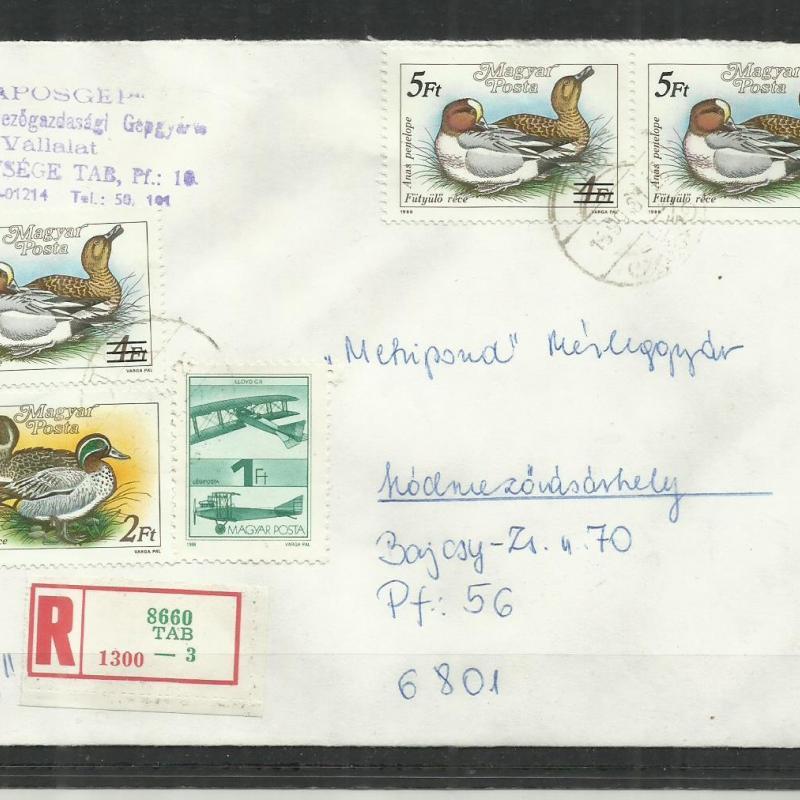 APOSGÉP
ezőgazdasági Gépgyár
Vállalat
SÉGE TAB, Pf.: 10.
-01214 Tel.: 50, 101
5Ft Magyar Posta
Anas penelope
Fütyülő réce 4Ft
1988 VARGA PÁL
5Ft Magyar Posta
Anas penelope
Fütyülő réce
1988
Magyar Posta
4Ft
VARGA PÁL
Magyar Posta
2Ft
réce
VARGA PÁL
LLOYD C.II
LÉGIPOSTA 1Ft
MAGYAR POSTA
1988 VARGA PÁL
„Metripond" Mérleggyár
Hódmezővásárhely
Bajcsy-Zs. u. 70
Pf.: 56
6801
R
8660
TAB
1300 — 3